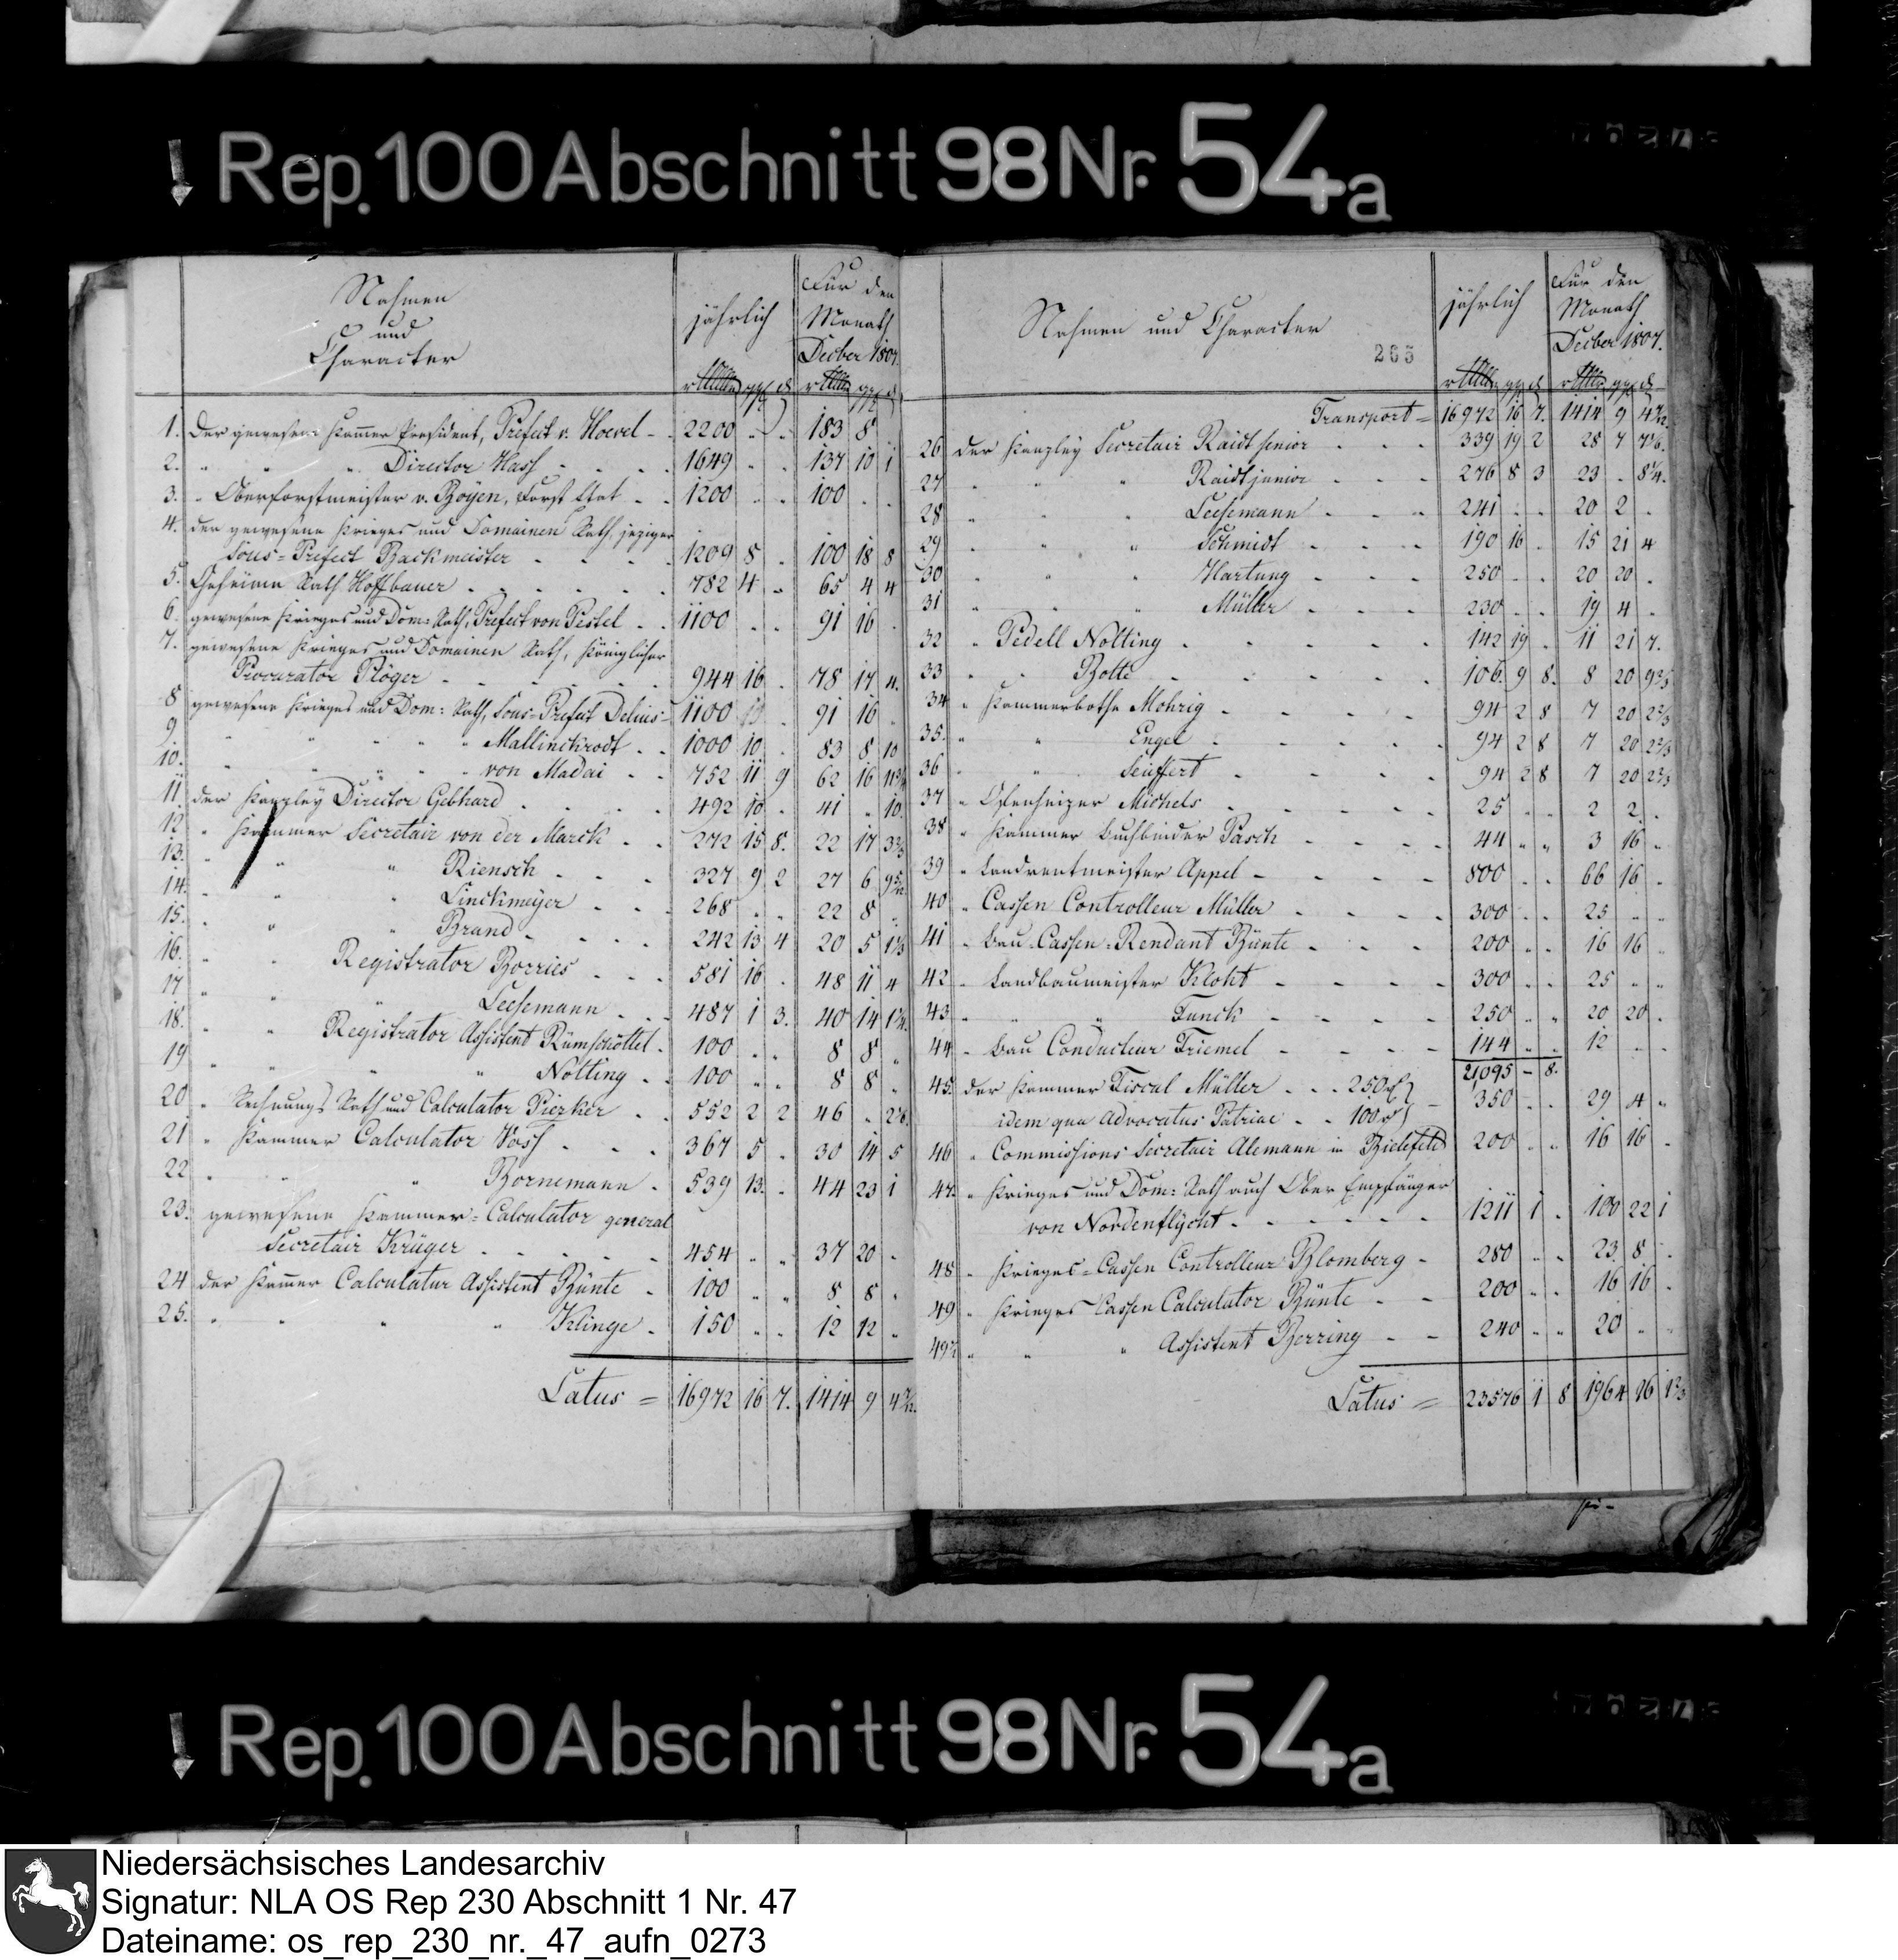 Rep. 100 Abschnitt 98 Nr. 54a
Nahmen
und
Character
jährlich
Für den
Monath
Decber 1807.
1. Der gewesene Kammer Praesident, Prefect v. Hoevel 2200 183 8
2. " " " Director Hass 1649 137 10 1
3. " Oberforstmeister v. Boyen, Forst Etat 1200 100
4. der gewesene Krieges und Domainen Rath, jeziger
Sous-Prefect Backmeister 1209 8 100 18 8
5. Geheime Rath Hoffbauer 782 4 65 4 4
6. gewesene Krieges und Dom: Rath, Prefect von Pestel 1100 91 16
7. gewesene Krieges und Domainen Rath, Königlicher
Procurator Röger 944 16 78 17 4.
8 gewesene Krieges und Dom: Rath, Sous-Prefect Delius 1100 91 16
9 " " " " " Mallinckrodt 1000 10 83 8 10
10. " " " " von Madai 752 11 9 62 16 11¾
11 der Kanzley Director Gebhard 492 10 41 " 10.
12 " Kammer Secretair von der Marck 272 15 8. 22 17 3⅔
13. " " " Riensch 327 9 2 27 6 9
14. " " " Linckmeyer 268 22 8
15. " " " Brand 242 13 4 20 5 1⅓
16. " " Registrator Borries 581 16 48 11 4
17 " " " Leesemann 487 1 3. 40 14 1¼
18. " " Registrator Assistent Rümschöttel 100 8 8
19 " " " " Nolting 100 8 8
20 " Rechnungs Rath und Calculator Pierker 552 2 2 46 " 2⅙
21 " Kammer Calculator Voss 367 5 30 14 5
22 " " " Bornemann 539 13. 44 23 1
23. gewesene Kammer-Calculator general
Secretair Krüger 454 37 20
24 der Kammer Calculatur Assistent Bünte 100 8 8
25. " " " " Klinge 150 12 12
Latus = 16972 16 7. 1414 9 4
Nahmen und Character
265
jährlich
Für den
Monath
Decber 1807.
Transport = 16972 16 7. 1414 9 4
26 der Kanzley Secretair Raidt senior 339 19 2 28 7 7⅙
27 " " " Raidt junior 276 8 3 23 " 8¼
28 " " " Leesemann 241 20 2
29 " " " Schmidt 190 16 15 21 4
30 " " " Hartung 250 20 20
31 " " " Müller 230 19 4
32 " Pedell Nolting 142 19 11 21 7.
33 " " Botte 106. 9 8. 8 20 9⅔
34 " Kammerbothe Mohrig 94 2 8 7 20 2⅔
35. " " Engel 94 2 8 7 20 2⅔
36 " " Seuffert 94 2 8 7 20 2⅔
37 " Ofenheizer Michels 25 2 2
38 " Kammer Buchbinder Pasch 44 3 16
39 " Landrentmeister Appel 800 66 16
40 " Cassen Controlleur Müller 300 25
41 " Bau-Cassen-Rendant Bünte 200 16 16
42 " Landbaumeister Kloht 300 25
43 " " Funck 250 20 20
44 " Bau Conducteur Triemel 144 12
21,095 - 8.
45. der Kammer Fiscal Müller 250
idem qua Advocatus Patriae 100 350 29 4
46 " Commissions Secretair Alemann in Bielefeld 200 16 16
47. " Krieges und Dom: Rath auch Ober Empfänger
von Nordenflycht 1211 1 100 22 1
48 " Krieges-Cassen Controlleur Blomberg 280 23 8
49 " Krieges Cassen Calculator Bünte 200 16 16
49½ " " " Assistent Berring 240 20
Latus = 23576 1 8 1964 16 1⅔
Rep. 100 Abschnitt 98 Nr. 54a
Niedersächsisches Landesarchiv
Signatur: NLA OS Rep 230 Abschnitt 1 Nr. 47
Dateiname: os_rep_230_nr._47_aufn_0273